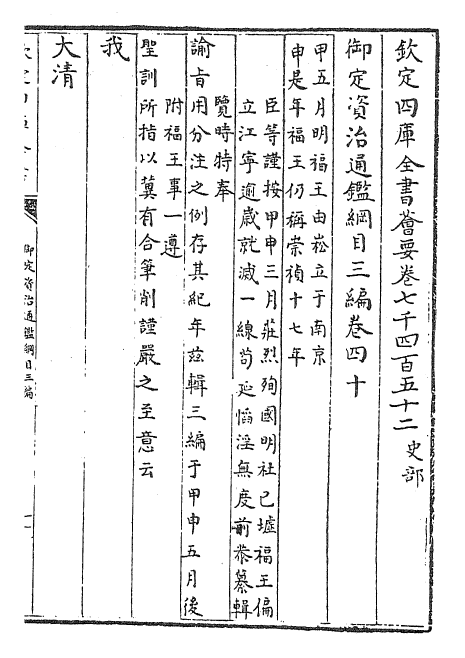 欽定四庫全書薈要卷七千四百五十二 史部
御定資治通鑑綱目三編卷四十
甲五月明福王由崧立于南京
申是年福王仍稱崇禎十七年
臣等謹按甲申三月莊烈殉國明社已墟福王偏
立江寧逾歲就滅一線茍延惛淫無度前恭纂輯
覽時特奉
諭旨用分注之例存其紀年茲輯三編于甲申五月後
附福王事一遵
聖訓所指以冀有合筆削謹嚴之至意云
我
大清
御定資治通鑑綱目三編